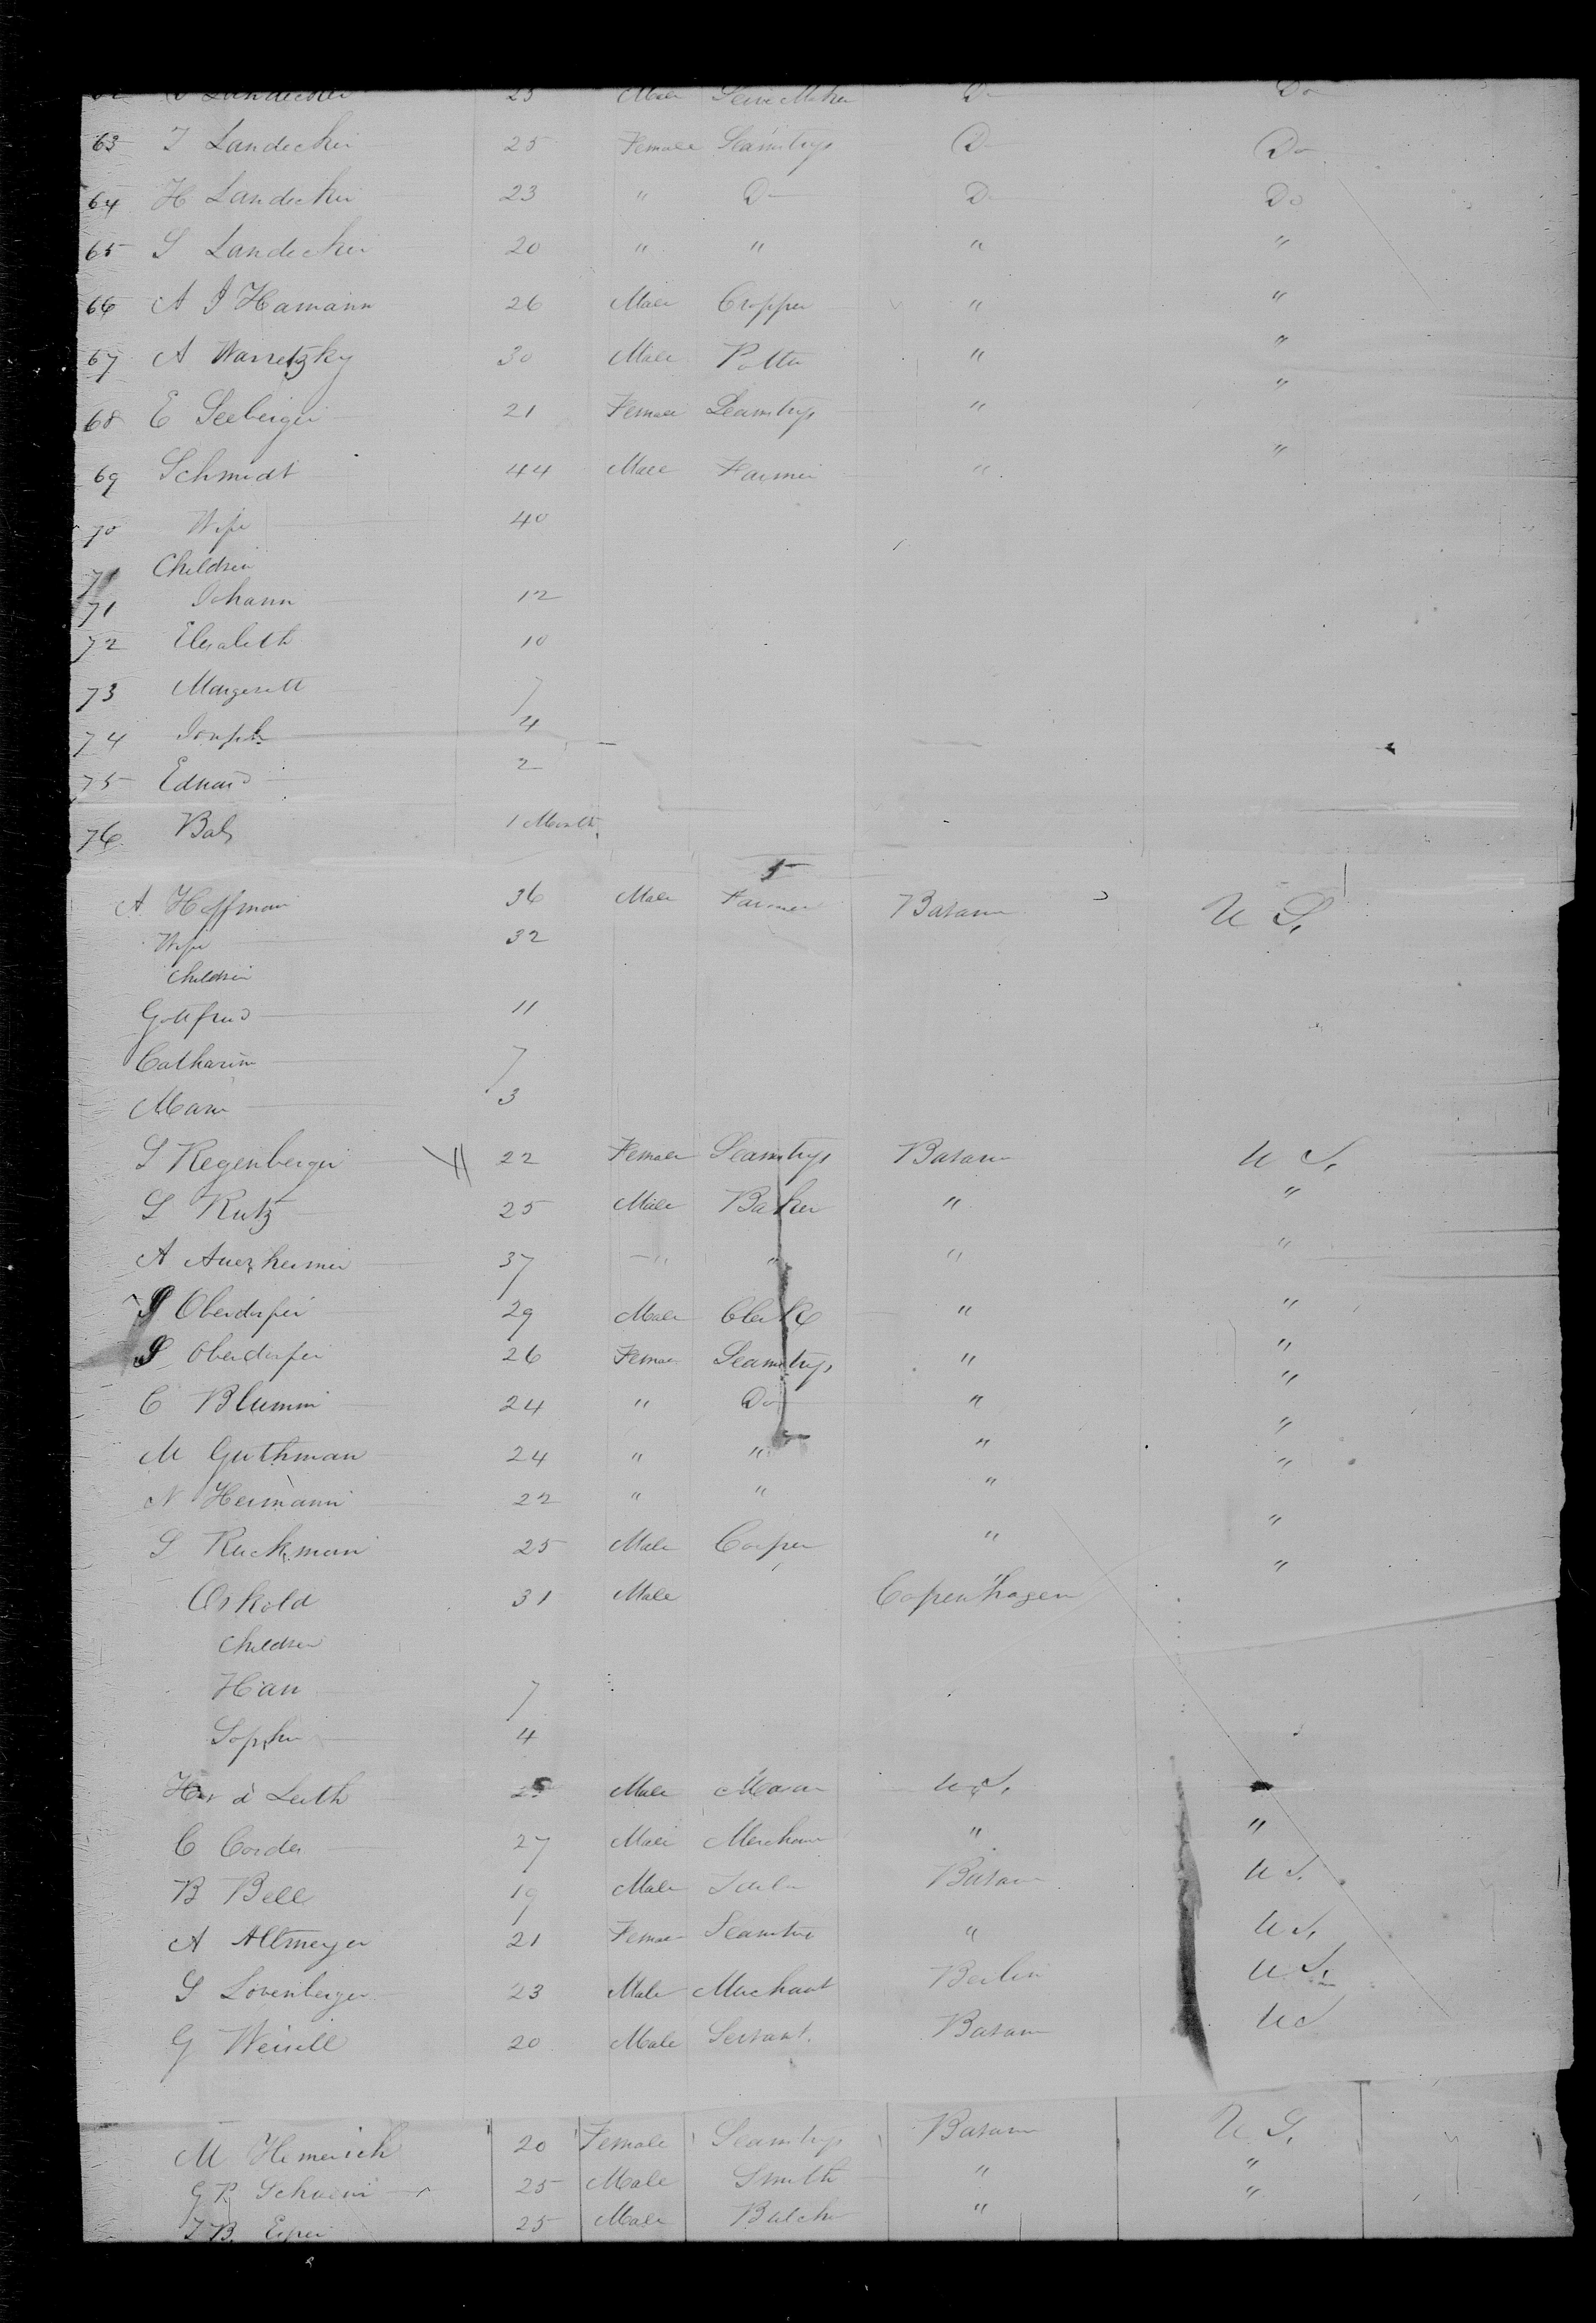 Landecker 23 Male Do
63 I Landecker 25 Female Seamstress Do Do
64 H Landecker 23 " Do Do Do
65 S Landecker 20 " " " "
66 A I Hamann 26 Male Cropper " "
67 A Warretzky 30 Male Potter " "
68 E Seeberger 21 Female Seamstress " "
69 Schmidt 44 Male Farmer " "
70 Wife 40
71 Children
71 Johann 12
72 Elisabeth 10
73 Margerett 7
74 Joseph 4
75 Eduard 2
76 Baby 1 Month
A Hoffman 36 Male Farmer Bavaria U S.
Wife 32
Children
Gottfried 11
Catharine 7
Marie 3
S Regenberger 22 Female Seamstress Bavaria U S.
S Kutz 25 Male Baker " "
A Auezheimer 37 " " " "
S Oberdorfer 29 Male Clerk " "
S Oberdorfer 26 Female Seamstress " "
C Blumm 24 " Do " "
M Guthman 24 " " " "
N Hermann 22 " " " "
S Ruckman 25 Male Cooper " "
Oskold 31 Male Copenhagen "
Children
Han 7
Sophie 4
Leith 25 Male Mason U.S. "
C Cordes 27 Male Merchant " "
B Bell 19 Male Bavaria U S.
A Altmeyer 21 Female Seamstress " U S.
S Lovenberger 23 Male Merchant Berlin U S.
G Weisell 20 Male Servant. Bavaria U S
M Hemerich 20 Female Seamstress Bavaria U S.
G P. 25 Male Smith " "
J B. 25 Male Butcher "